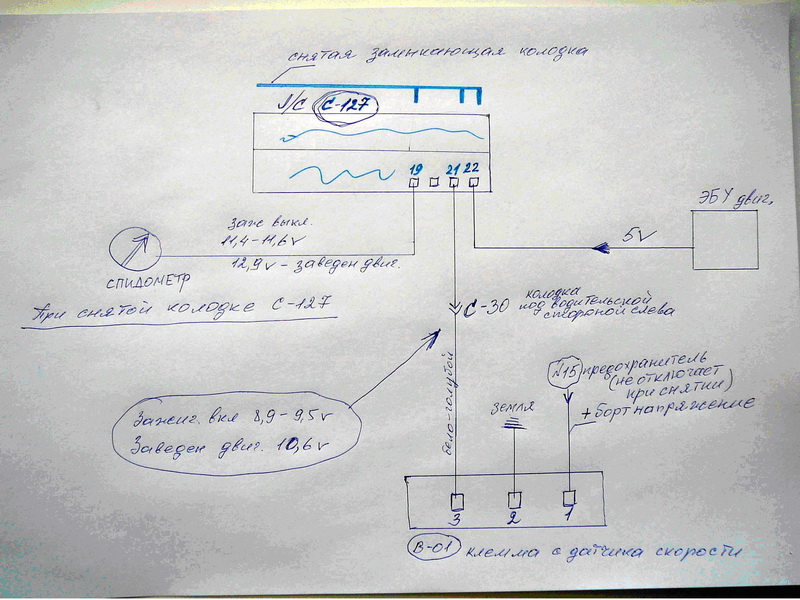 снятая замыкающая колодка
Л/С С-127
19 21 22
ЭБУ двиг.
5V
Заж выкл.
11,4-11,6v
12,9v - заведен двиг.
СПИДОМЕТР
При снятой колодке С-127
С-30 колодка
под водительской
стороной слева
бело-голубой
N15 предохранитель
(не отключает
при снятии)
+ Борт напряжение
ЗЕМЛЯ
Зажиг. вкл 8,9-9,5v
Заведен двиг. 10,6v
3 2 1
B-01 клемма с датчика скорости